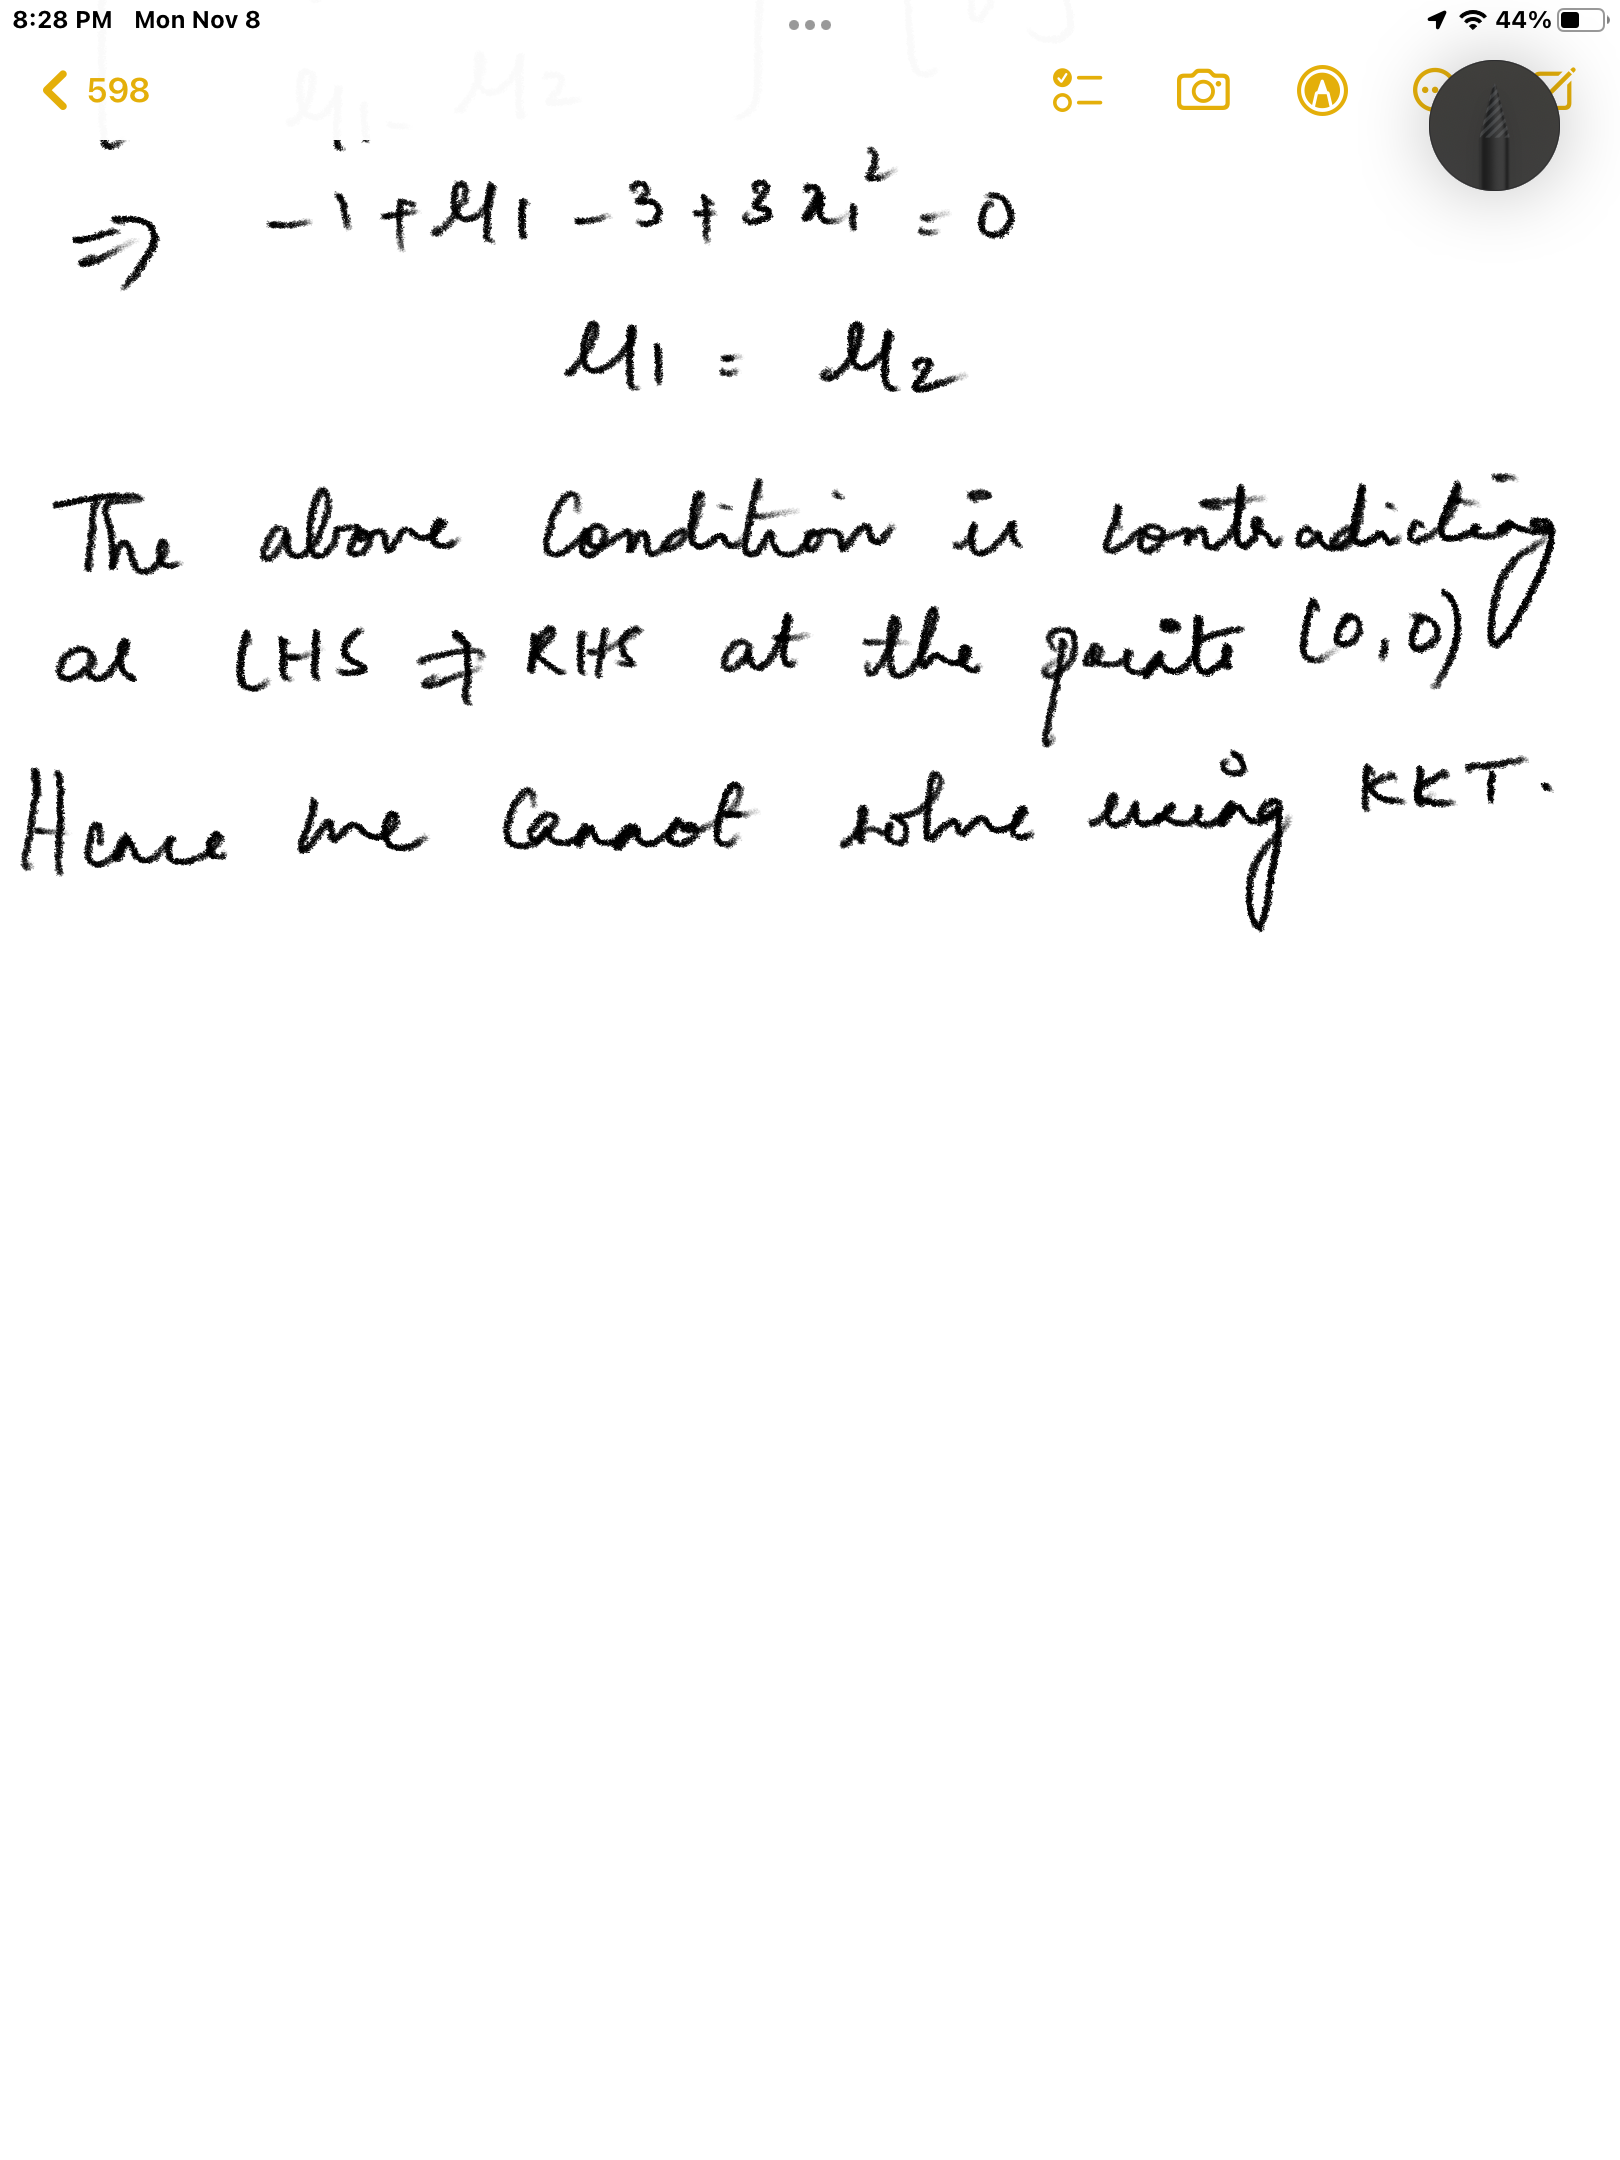 8:28 PM Mon Nov 8 44%
598
⇒ -1 + μ1 - 3 + 3x₁² = 0
μ1 = μ2
The above condition is contradicting
as LHS ≠ RHS at the points (0,0)
Hence we cannot solve using KKT.